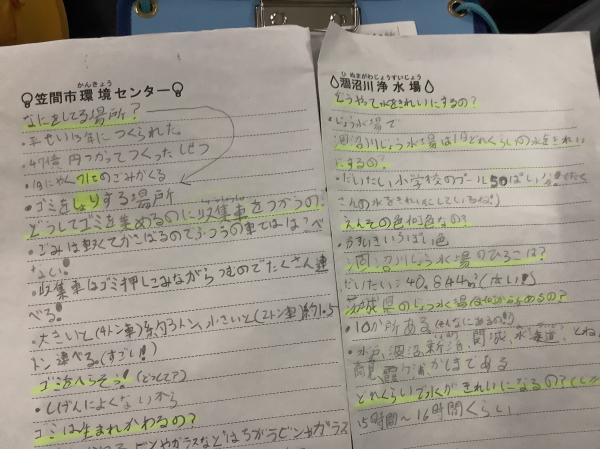 かんきょう
笠間市環境センター
なにをしてる場所?
・平せい13年につくられた
・47億円つかってつくったしせつ
・1日にやく71tのごみがくる
・ゴミをしょりする場所
どうしてゴミを集めるのに収集車をつかうの?
・ごみは軽くてかさばるのでふつうの車では
ない
・収集車はゴミ押しこみながらつむのでたくさん運
べる!
・大きいと(4トン車)約3トン、小さいと(2トン車)約1.5
トン運べる(すごい!)
ゴミをへらそう!(どうして?)
・しげんによくないから
ゴミは生まれかわるの?
ビンやガラスなどはちがうビンやガラス
ひぬまがわじょうすいじょう
涸沼川浄水場
どうやって水をきれいにするの?
・じょう水場で
涸沼川じょう水場は1日どれくらいの水をきれい
にするの?
・だいたい小学校のプール50ぱい
さんの水をきれいにしているね!)
えんその色は何色なの?
涸沼川じょう水場のひろさは?
だいたい40,844m²
茨城県のじょう水場は何か所あるの?
・10か所ある(そんなにあるの!!)
・水戸、涸沼
霞ヶ浦がある
どれくらいで水がきれいになるの?
15時間～16時間くらい